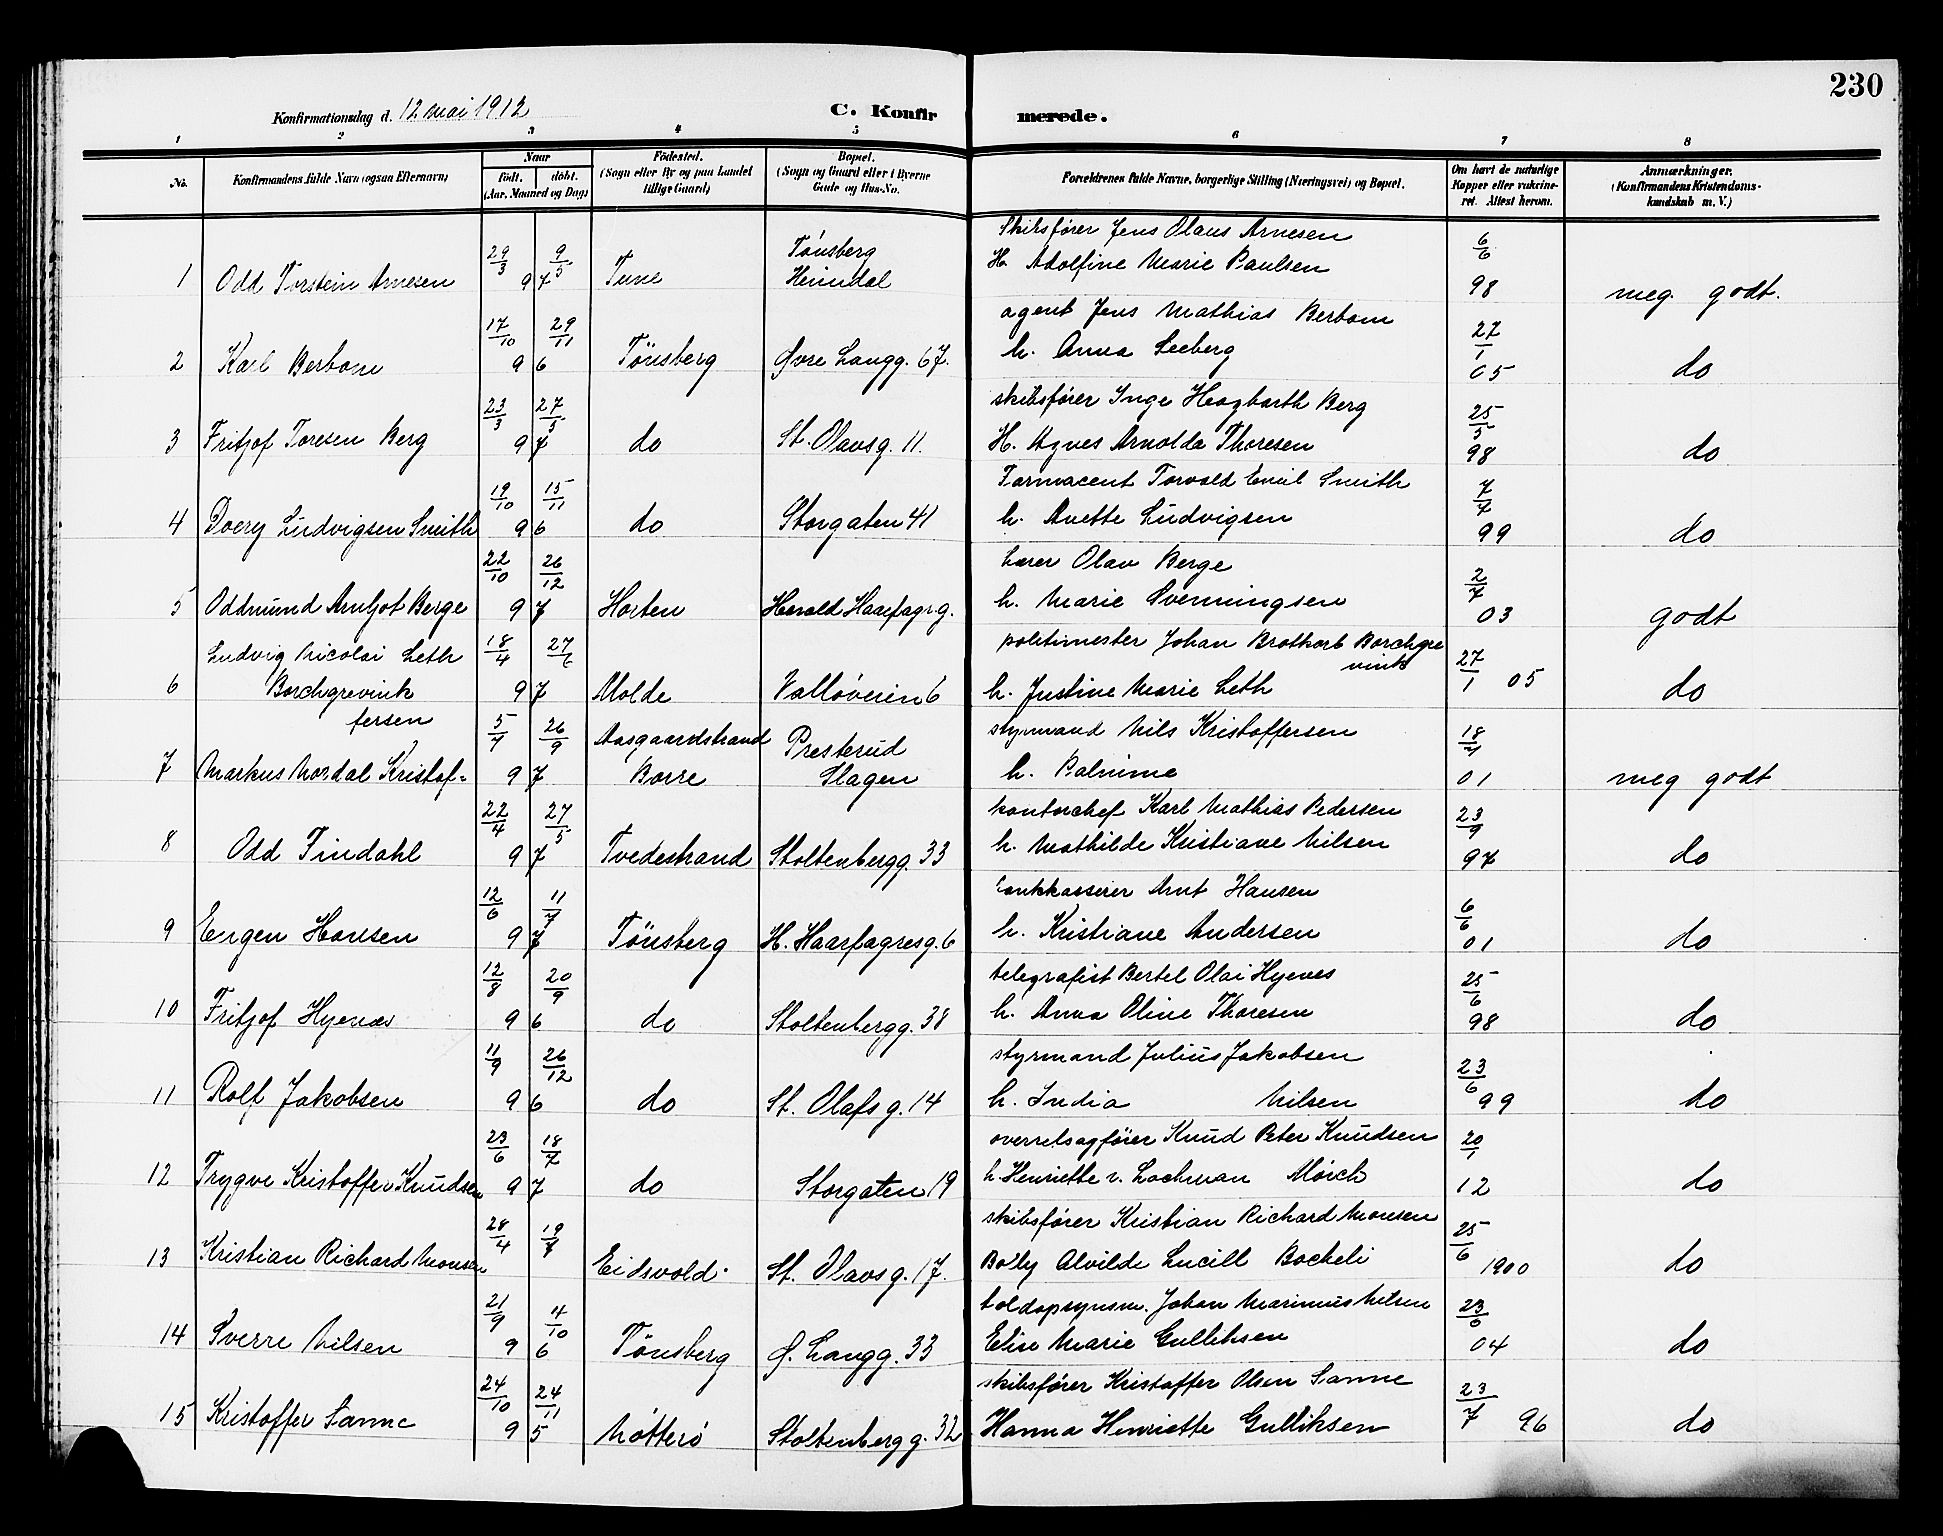 230
Konfirmationsdag d. 12 mai 1912 C. Konfirmerede.
1 2 3 4 5 6 7 8
No. Konfirmandens fulde Navn (ogsaa Efternavn) Naar født. døbt. (Aar, Maaned og Dag) Fødested. (Sogn eller By og paa Landet tillige Gaard) Bopæl. (Sogn og Gaard eller i Byerne Gade og Hus-No. Forældrenes fulde Navne, borgerlige Stilling (Næringsvei) og Bopæl. Om havt de naturlige Kopper eller vakcineret. Attest herom. Anmærkninger. (Konfirmandens Kristendomskundskab m. V.)
1 Odd Torstein Arnesen 29/3 9/5 97 Tune Tønsberg Heimdal Skibsfører Jens Olaus Arnesen H. Adolfine Marie Paulsen 6/6 98 meg. godt.
2 Karl Berbom 17/10 29/11 96 Tönsberg Øvre Langg. 67. agent Jens Mathias Berbom h. Anna Seeberg 27/1 05 do
3 Fritjof Toresen Berg 23/3 27/5 97 do St. Olavsg. 11. skibsfører Inge Hagbarth Berg H. Agnes Arnolda Thoresen 25/5 98 do
4 Ludvigsen Smith 19/10 15/11 96 do Storgaten 41 Farmacent Torvald Emil Smith h. Anette Ludvigsen 7/7 99 do
5 Oddmund Arnljot Berge 22/10 26/12 97 Horten Harald Haarfagr.g. Lærer Olav Berge h. Marie Svenningsen 2/7 03 godt
6 Ludvig Nicolai Leth Borchgrevink 18/4 27/6 97 Molde Valløverien 6 politimester Johan Brotkorb Borchgrevink h. Justine Marie Leth 27/1 05 do
7 Markus Nordal Kristof=fersen 5/4 26/9 97 Aasgaardstrand Borre Presterud Slagen styrmand Nils Kristoffersen h. 18/4 01 meg godt
8 Odd Tindahl 22/4 27/5 97 Tvedestrand Stoltenbergg. 33 kontorchef Karl Mathias Pedersen h. Mathilde Kristiane Nilsen 23/9 97 do
9 Eugen Hansen 12/6 11/7 97 Tönsberg H. Haarfagresg. 6 bankkasserer Arnt Hansen h. Kristiane Andersen 6/6 01 do
10 Fritjof Hyenæs 12/8 20/9 96 do Stoltenbergg. 38 telegrafist Bertel Olai Hyenes h. Anna Oline Thoresen 25/6 98 do
11 Rolf Jakobsen 11/9 26/12 96 do St. Olafsg. 14 styrmand Julius Jakobsen h. India Nilsen 23/6 99 do
12 Trygve Kristoffer Knudsen 23/6 18/7 97 do Storgaten 19 overretsagfører Knud Peter Knudsen h. Henriette v. Lochman Mörch 20/1 12 do
13 Kristian Richard Monsen 28/4 19/7 Eidsvold. St. Olavsg. 17. skibsfører Kristian Richard Monsen Alvilde Lucill Bockeli 25/6 1900 do
14 Sverre Nilsen 21/9 4/10 96 Tönsberg Ø. Langg. 33 toldopsynsm. Johan Marinius Nilsen Elise Marie Gulliksen 23/6 04 do
15 Kristoffer Sanne 24/10 24/11 95 Nötterö Stoltenbergg. 32 skibsfører Kristoffer Olsen Sanne Hanna Henriette Gulliksen 23/7 96 do